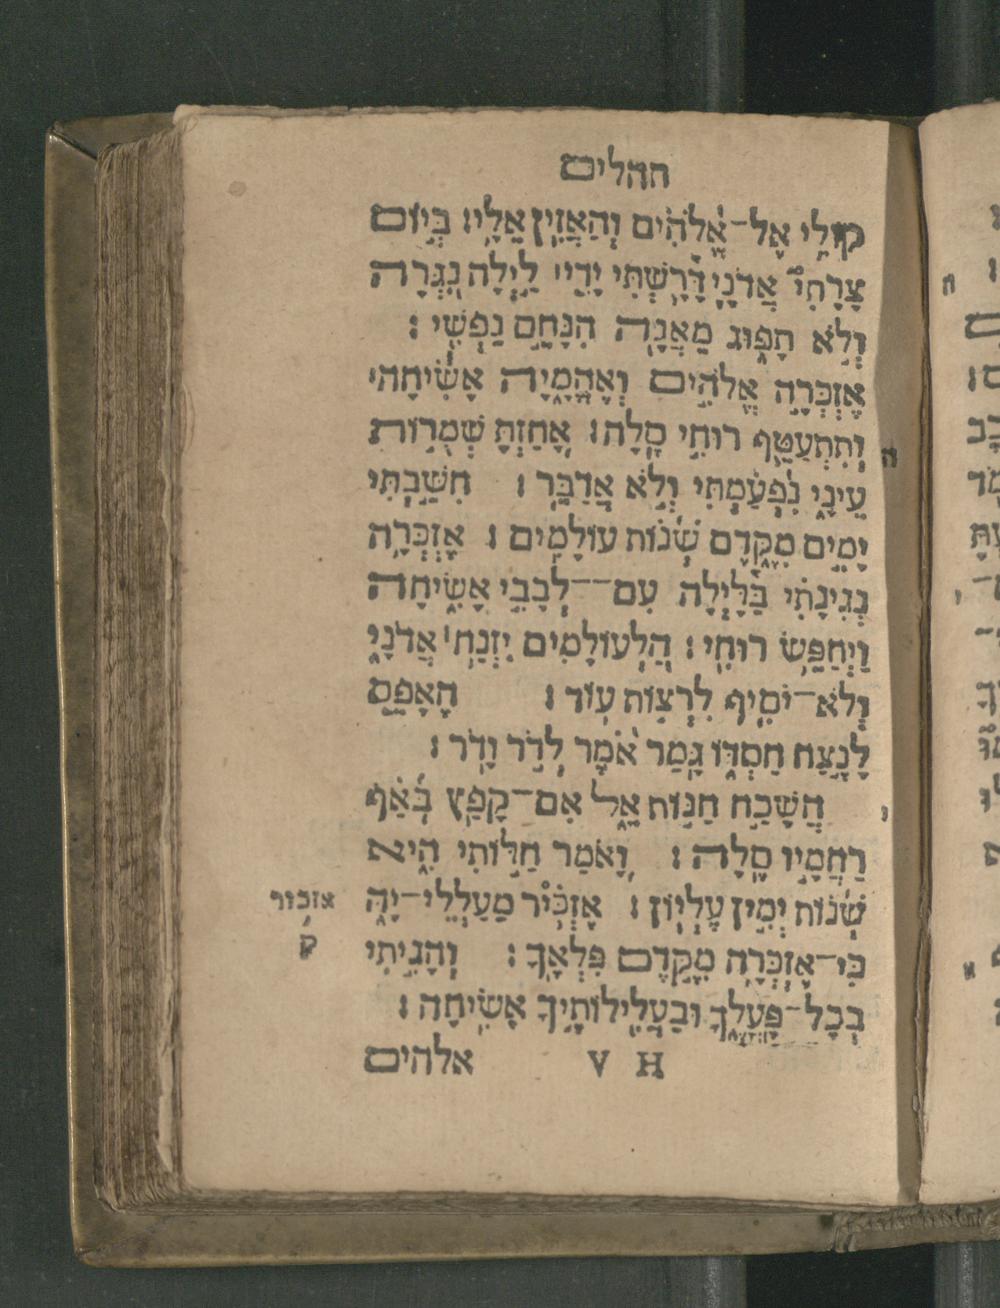 תהלים
קוֹלִ֥י אֶל־אֱ֝לֹהִ֗ים וְהַאֲזִ֥ין אֵלָֽי׃ בְּי֥וֹם
צָרָתִי֮ אֲדֹנָ֪י דָּ֫רָ֥שְׁתִּי יָדִ֤י׀ לַ֣יְלָה נִ֭גְּרָה
וְלֹ֣א תָפ֑וּג מֵאֲנָ֖ה הִנָּחֵ֣ם נַפְשִֽׁי׃
אֶזְכְּרָ֣ה אֱלֹהִ֣ים וְאֶהֱמָיָ֑ה אָשִׂ֓יחָה׀
וְתִתְעַטֵּ֖ף רוּחִ֣י סֶֽלָה׃ אָ֭חַזְתָּ שְׁמֻר֣וֹת
עֵינָ֑י נִ֝פְעַ֗מְתִּי וְלֹ֣א אֲדַבֵּֽר׃ חִשַּׁ֣בְתִּי
יָמִ֣ים מִקֶּ֑דֶם שְׁ֝נ֗וֹת עוֹלָמִֽים׃ אֶֽזְכְּרָ֥ה
נְגִינָתִ֗י בַּ֫לָּ֥יְלָה עִם־־לְבָבִ֥י אָשִׂ֑יחָה
וַיְחַפֵּ֥שׂ רוּחִֽי׃ הַֽ֭לְעוֹלָמִים יִזְנַ֥ח׀ אֲדֹנָ֑י
וְלֹא־יֹסִ֖יף לִרְצ֣וֹת עֽוֹד׃ הֶאָפֵ֣ס
לָנֶ֣צַח חַסְדּ֑וֹ גָּ֥מַר אֹ֝֗מֶר לְדֹ֣ר וָדֹֽר׃
הֲשָׁכַ֣ח חַנּ֣וֹת אֵ֑ל אִם־קָפַ֥ץ בְּ֝אַ֗ף
רַחֲמָ֥יו סֶֽלָה׃ וָ֭אֹמַר חַלּ֣וֹתִי הִ֑יא
שְׁ֝נ֗וֹת יְמִ֣ין עֶלְיֽוֹן׃ אֶזְכִּ֥יר מַֽעַלְלֵי־יָ֑הּ
כִּֽי־אֶזְכְּרָ֖ה מִקֶּ֣דֶם פִּלְאֶֽךָ׃ וְהָגִ֥יתִי
בְכָל־פָּעֳלֶ֑ךָ וּֽבַעֲלִ֖ילוֹתֶ֣יךָ אָשִֽׂיחָה׃
אזכור
ק
H V אלהים